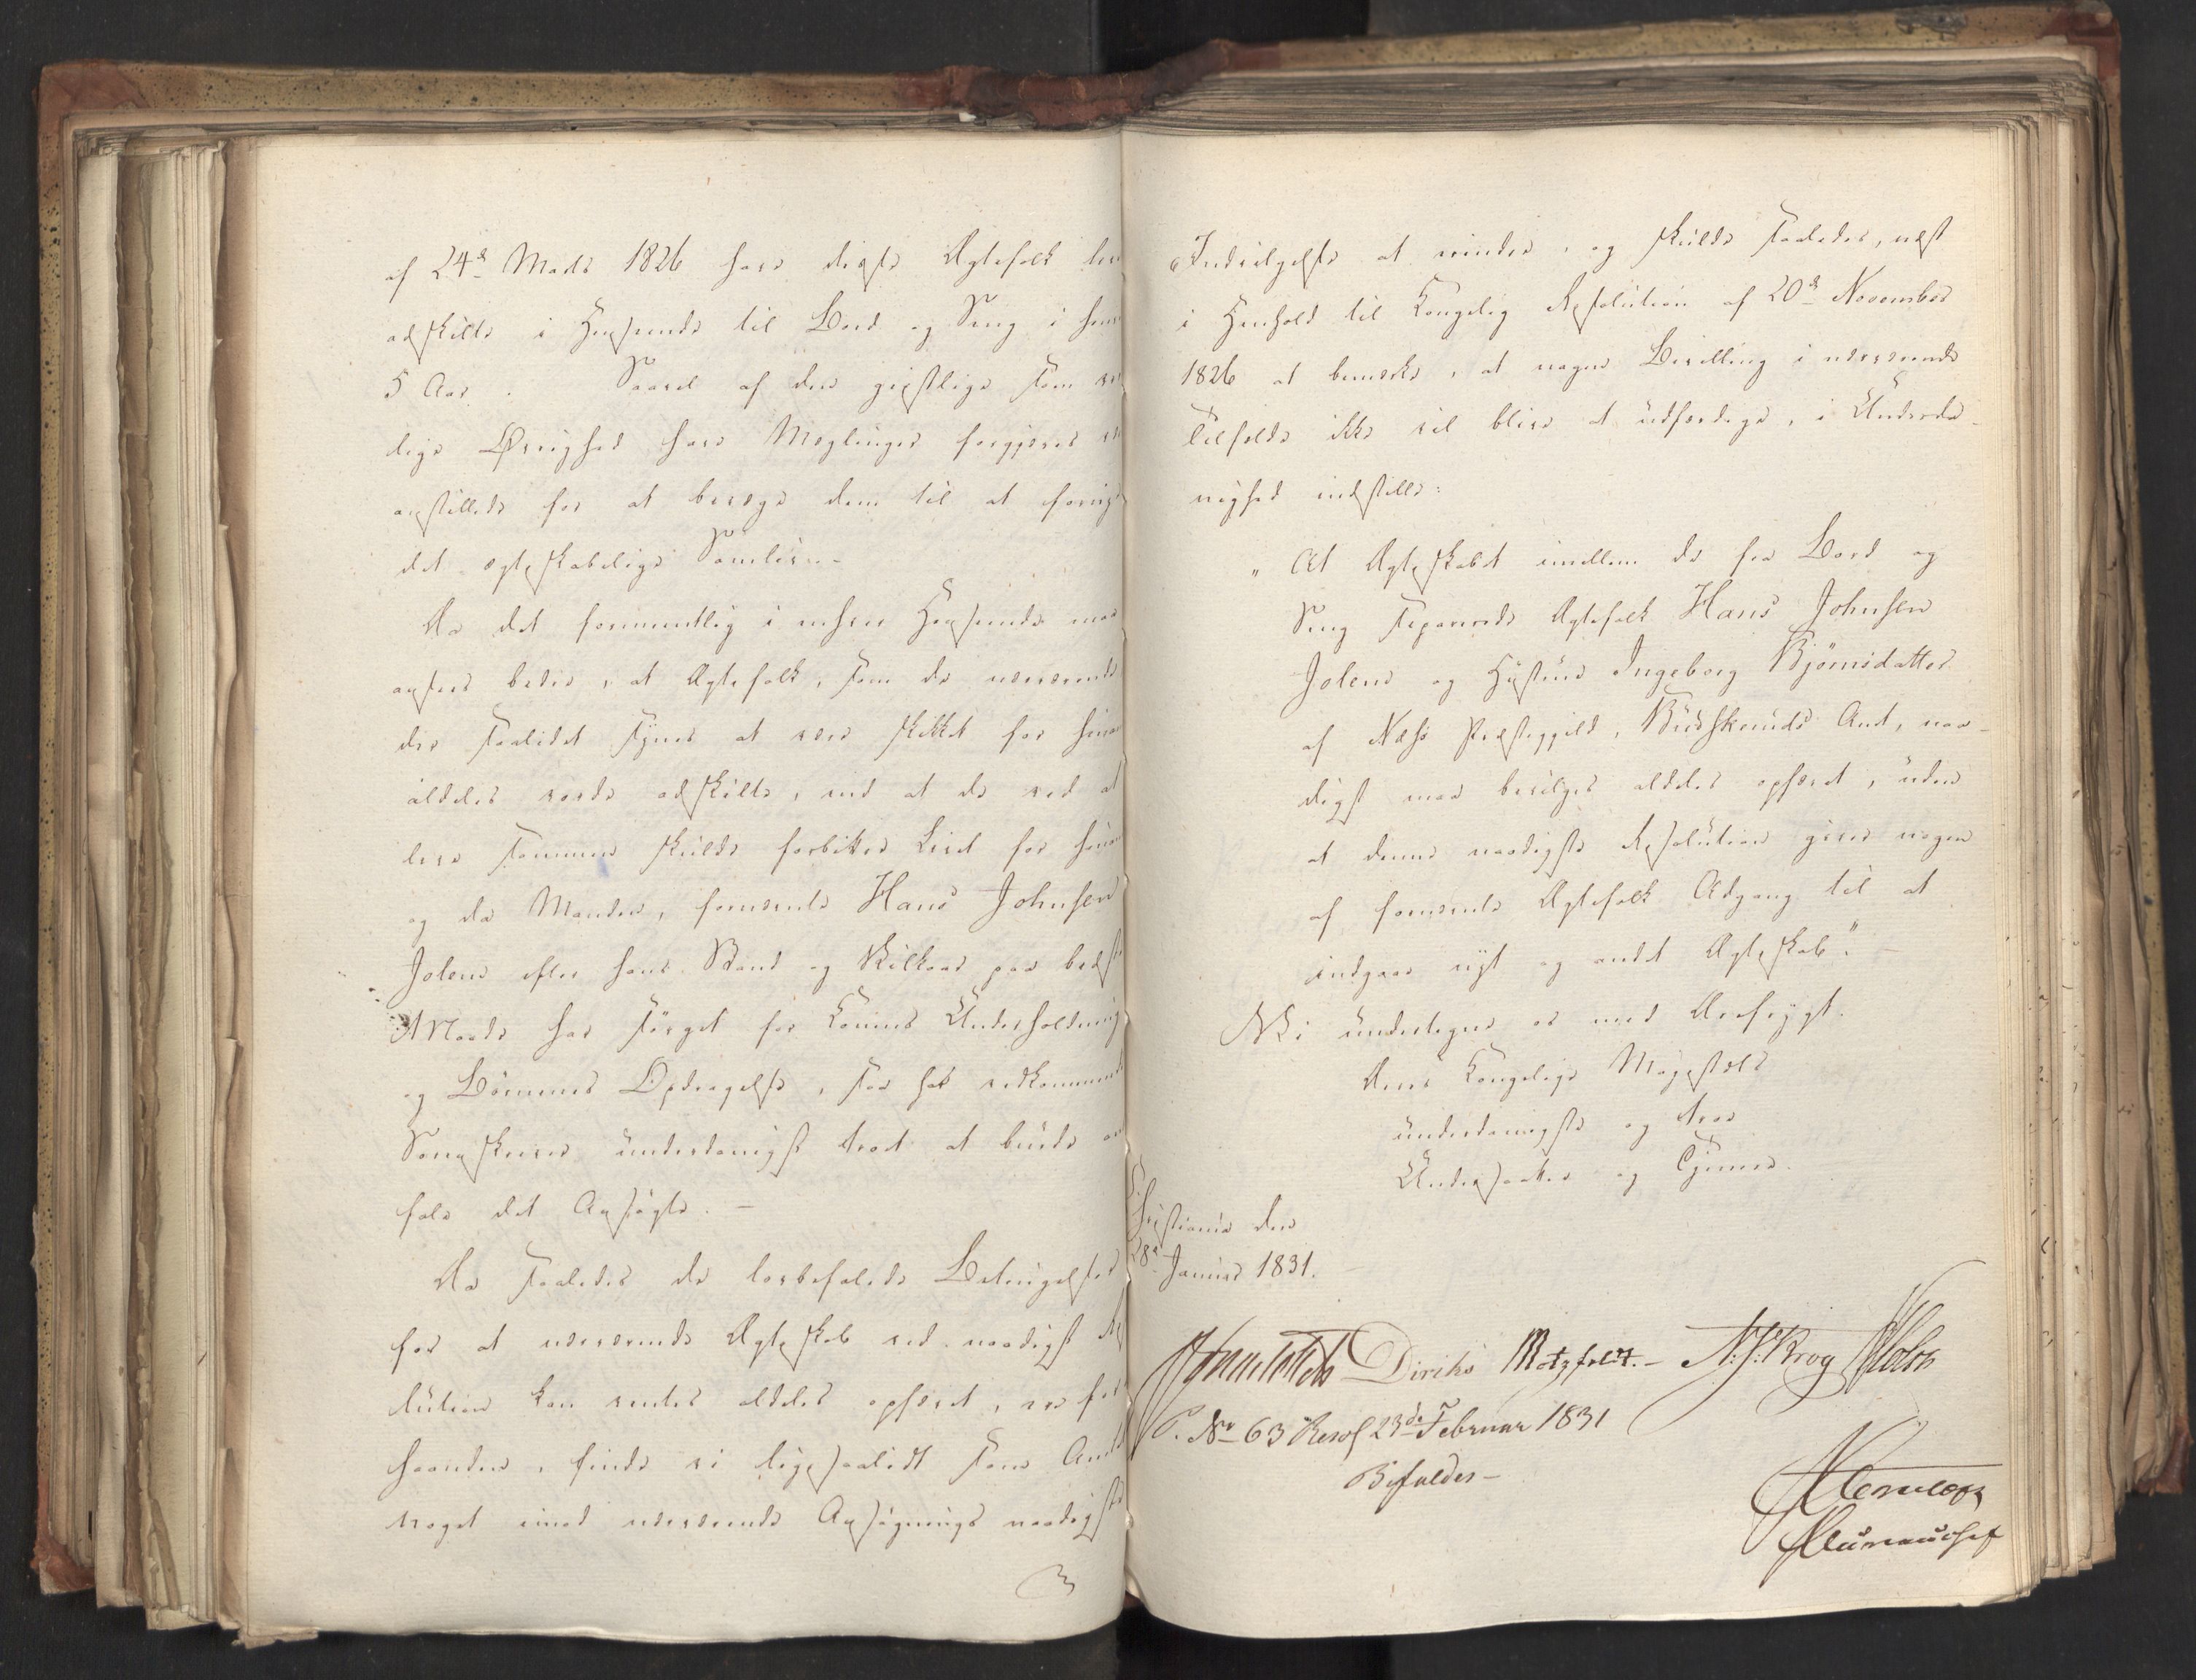 af 24de Marts 1826 have disse Ægtefolk lev
adskilte i Henseende til Bord og Seng i hen
5 Aar. Saavel af den geistlige som ve
lige Øvrighed have Mæglinger forgjeves væ
anstillede for at bevæge dem til at fornye
det ægteskabelige Samliv.
Da det formeentlig i enhver Henseende maa
ansees bedre, at Ægtefolk, som de nærværende
der saalidet synes at være skikket for hina
aldeles vorde adskilte, end at de ved at
leve sammen skulde forbittre Livet for hina
og da Manden, fornævnte Hans Johnsen
Jolens efter hans Stand og Vilkaar paa bedste
Maade har sørget for Konens Underholdning
og Børnenes Opdragelse, saa har vedkommende
Sorenskriver underdanigst troet at burde an
fale det Ansøgte. —
Da saaledes de lovbefalede Betingelser
for at nærværende Ægteskab ved naadigst Reso
lution kan ventes aldeles ophævet, ere for
haanden, finde vi ligesaalidt som Amtet
noget imod nærværende Ansøgnings naadigste
Indvilgelse at erindre, og skulde saaledes, næst
i Henhold til Kongelig Resolution af 20de November
1826 at bemærke, at nogen Bevilling i nærværende
Tilfælde ikke vil blive at udfærdige, i Underda-
nighed indstille:
"At Ægteskabet imellem de fra Bord og
Seng separerede Ægtefolk Hans Johnsen
Jolens og Hustrue Ingeborg Bjørnsdatter
af Næss Præstegjeld, Budskeruds Amt, naa-
digst maa bevilges aldeles ophævet, uden
at denne naadigste Resolution giver nogen
af fornævnte Ægtefolk Adgang til at
indgaae nyt og andet Ægteskab". —
Vi undertegne os med Ærefrygt.
Deres Kongelige Majestæts
underdanigste og troe
Undersaatter og Tjenere.
Christiania den
28de Januar 1831.
Diriks Motzfeldt. — N: J: Krog Holst
P. No 63 Resol 23de Februar 1831
Bifaldes —